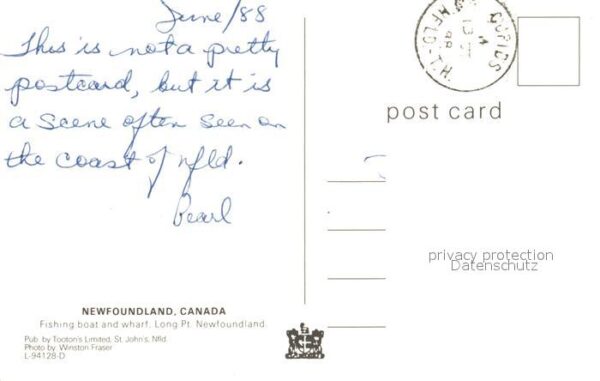 June/88
This is not a pretty
postcard, but it is
a scene often seen on
the coast of nfld.
Pearl
CUPIDS
NFLD-T.N.
post card
privacy protection
Datenschutz
NEWFOUNDLAND, CANADA
Fishing boat and wharf, Long Pt. Newfoundland.
Pub. by Tooton's Limited, St. John's, Nfld.
Photo by Winston Fraser
L-94128-D